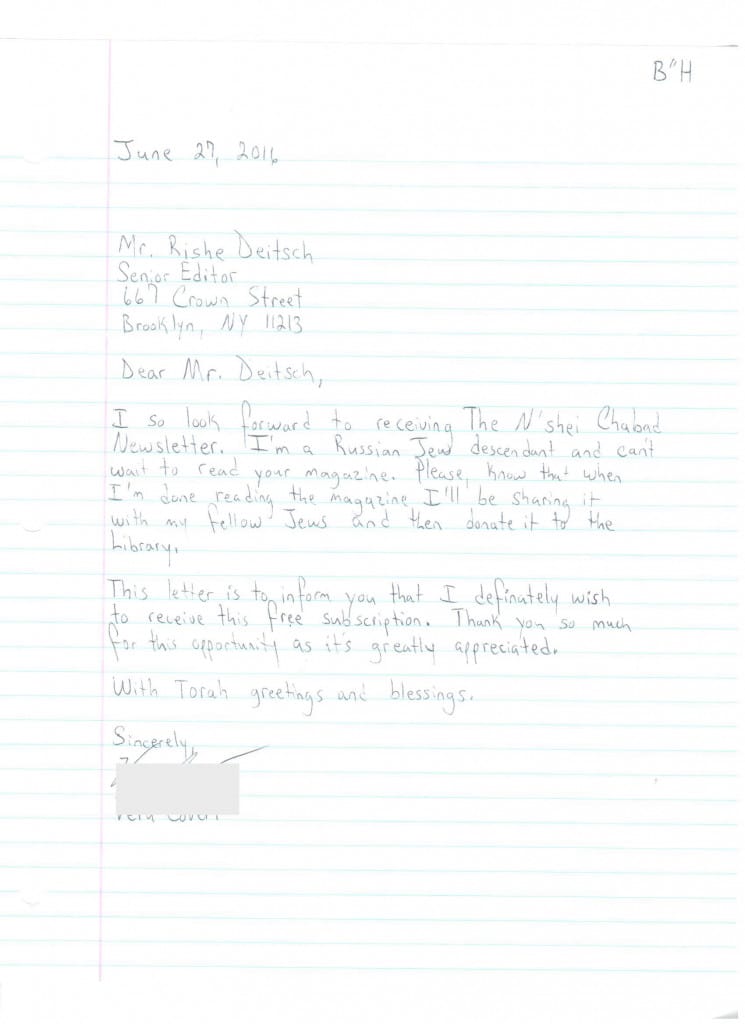 B"H
June 27, 2016
Mr. Rishe Deitsch
Senior Editor
667 Crown Street
Brooklyn, NY 11213
Dear Mr. Deitsch,
I so look forward to receiving The N'shei Chabad
Newsletter. I'm a Russian Jew descendant and can't
wait to read your magazine. Please, know that when
I'm done reading the magazine I'll be sharing it
with my fellow Jews and then donate it to the
Library.
This letter is to inform you that I definately wish
to receive this free subscription. Thank you so much
for this opportunity as it's greatly appreciated.
With Torah greetings and blessings.
Sincerely,